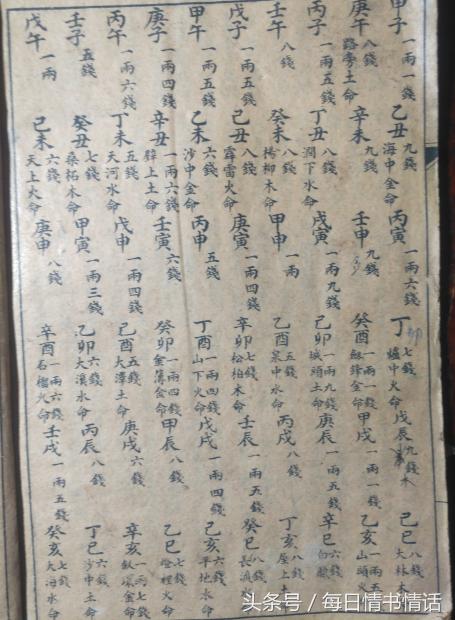 甲子 一兩一錢 乙丑 九錢 海中金命 丙寅 一兩六錢 丁卯 七錢 爐中火命 戊辰 九錢 木 己巳 八錢 大林木
庚午 八錢 路旁土命 辛未 九錢 壬申 九錢 癸酉 一兩一錢 劍鋒金命 甲戌 一兩一錢 乙亥 一兩五 山頭火
丙子 一兩五錢 丁丑 八錢 澗下水命 戊寅 一兩九錢 己卯 一兩九錢 城頭土命 庚辰 一兩五錢 辛巳 六錢 白臘
壬午 八錢 癸未 八錢 楊柳木命 甲申 一兩 乙酉 五錢 泉中水命 丙戌 八錢 丁亥 八錢 屋上土
戊子 一兩五錢 己丑 八錢 霹雷火命 庚寅 一兩四錢 辛卯 七錢 松柏木命 壬辰 一兩五錢 癸巳 八錢 長流水
甲午 一兩五錢 乙未 六錢 沙中金命 丙申 五錢 丁酉 一兩四錢 山下火命 戊戌 一兩四錢 己亥 六錢 平地木命
庚子 一兩四錢 辛丑 一兩六錢 壁上土命 壬寅 六錢 癸卯 一兩四錢 金簿金命 甲辰 八錢 乙巳 七錢 燈裡火命
丙午 一兩六錢 丁未 五錢 天河水命 戊申 一兩四錢 己酉 五錢 大澤土命 庚戌 六錢 辛亥 一兩七錢 釵環金命
壬子 五錢 癸丑 七錢 桑柘木命 甲寅 一兩三錢 乙卯 六錢 大溪水命 丙辰 八錢 丁巳 八錢 沙中土命
戊午 一兩 己未 六錢 天上火命 庚申 八錢 辛酉 一兩六錢 石榴火命 壬戌 一兩五錢 癸亥 七錢 大海水命
头条号 / 每日情书情话